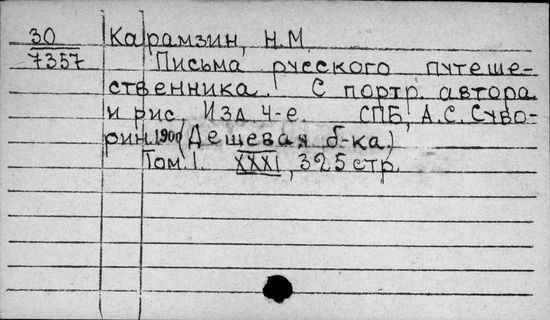 30 Карамзин, Н.М.
7357 Письма русского путеше-
ственника. С портр. автора
и рис. Изд. 4-е. СПБ, А.С. Суво-
рин. 1900 (Дешевая б-ка.)
Том. I. XXXI, 325 стр.